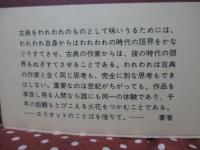 古典をわれわれのものとして味いうるためには、
われわれ自身からはわれわれの時代の限界をかな
ぐりすてさせ、古典の作家からは、彼の時代の限
界をぬぎすてさせることである。われわれは古典
の作家と全く同じ思考も、完全に別な思考もでき
はしない。重要なのは世紀がちがっても、作品を
享受し得る人間なら誰にも同一の体験であり、千
年の距離もとびこえる火花をつかむことである。
――エリオットのことばを借りて。―― 著者